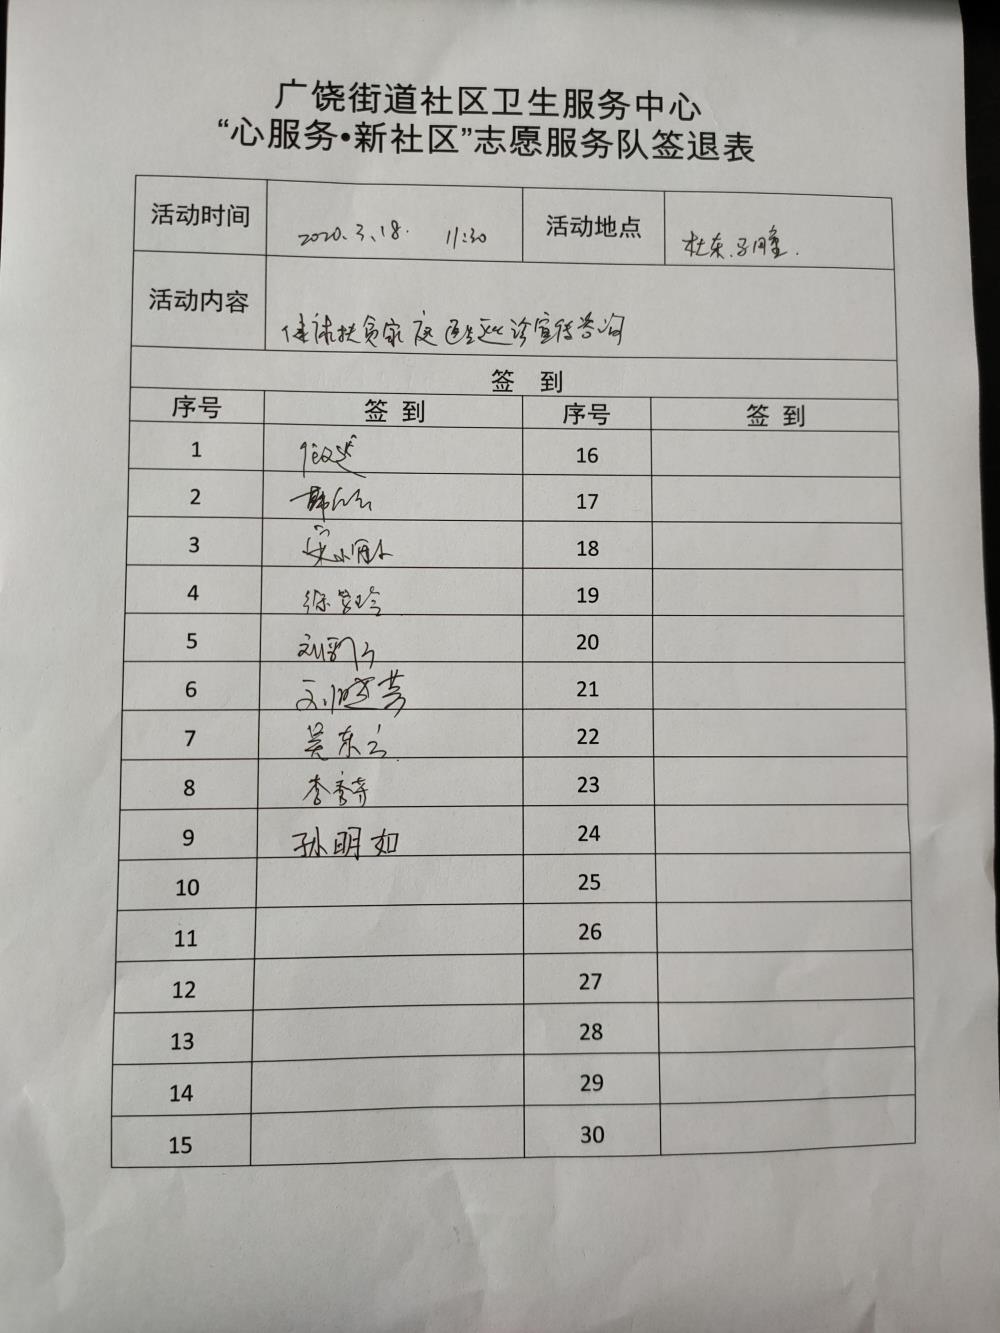 广饶街道社区卫生服务中心
“心服务•新社区”志愿服务队签退表
活动时间 2020.3.18. 11:30 活动地点 杜东.
活动内容 健康扶贫家庭医生巡诊宣传咨询
签 到
序号 签 到 序号 签 到
1 16
2 韩 17
3 宋 18
4 徐 19
5 刘 20
6 刘晓芳 21
7 吴东云 22
8 李秀 23
9 孙明如 24
10 25
11 26
12 27
13 28
14 29
15 30